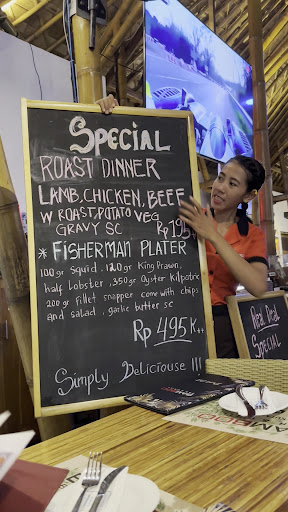 Special
ROAST DINNER
LAMB, CHICKEN, BEEF
W ROAST, POTATO VEG
GRAVY SC Rp 195
* FISHERMAN PLATER
100 gr Squid, 120gr King Prawn,
half Lobster, 350gr Oyster Kilpatric
200 gr fillet snapper come with chips
and salad, garlic butter sc
Rp 495 K++
Simply Deliciouse !!!
Real Deal
SPECIAL